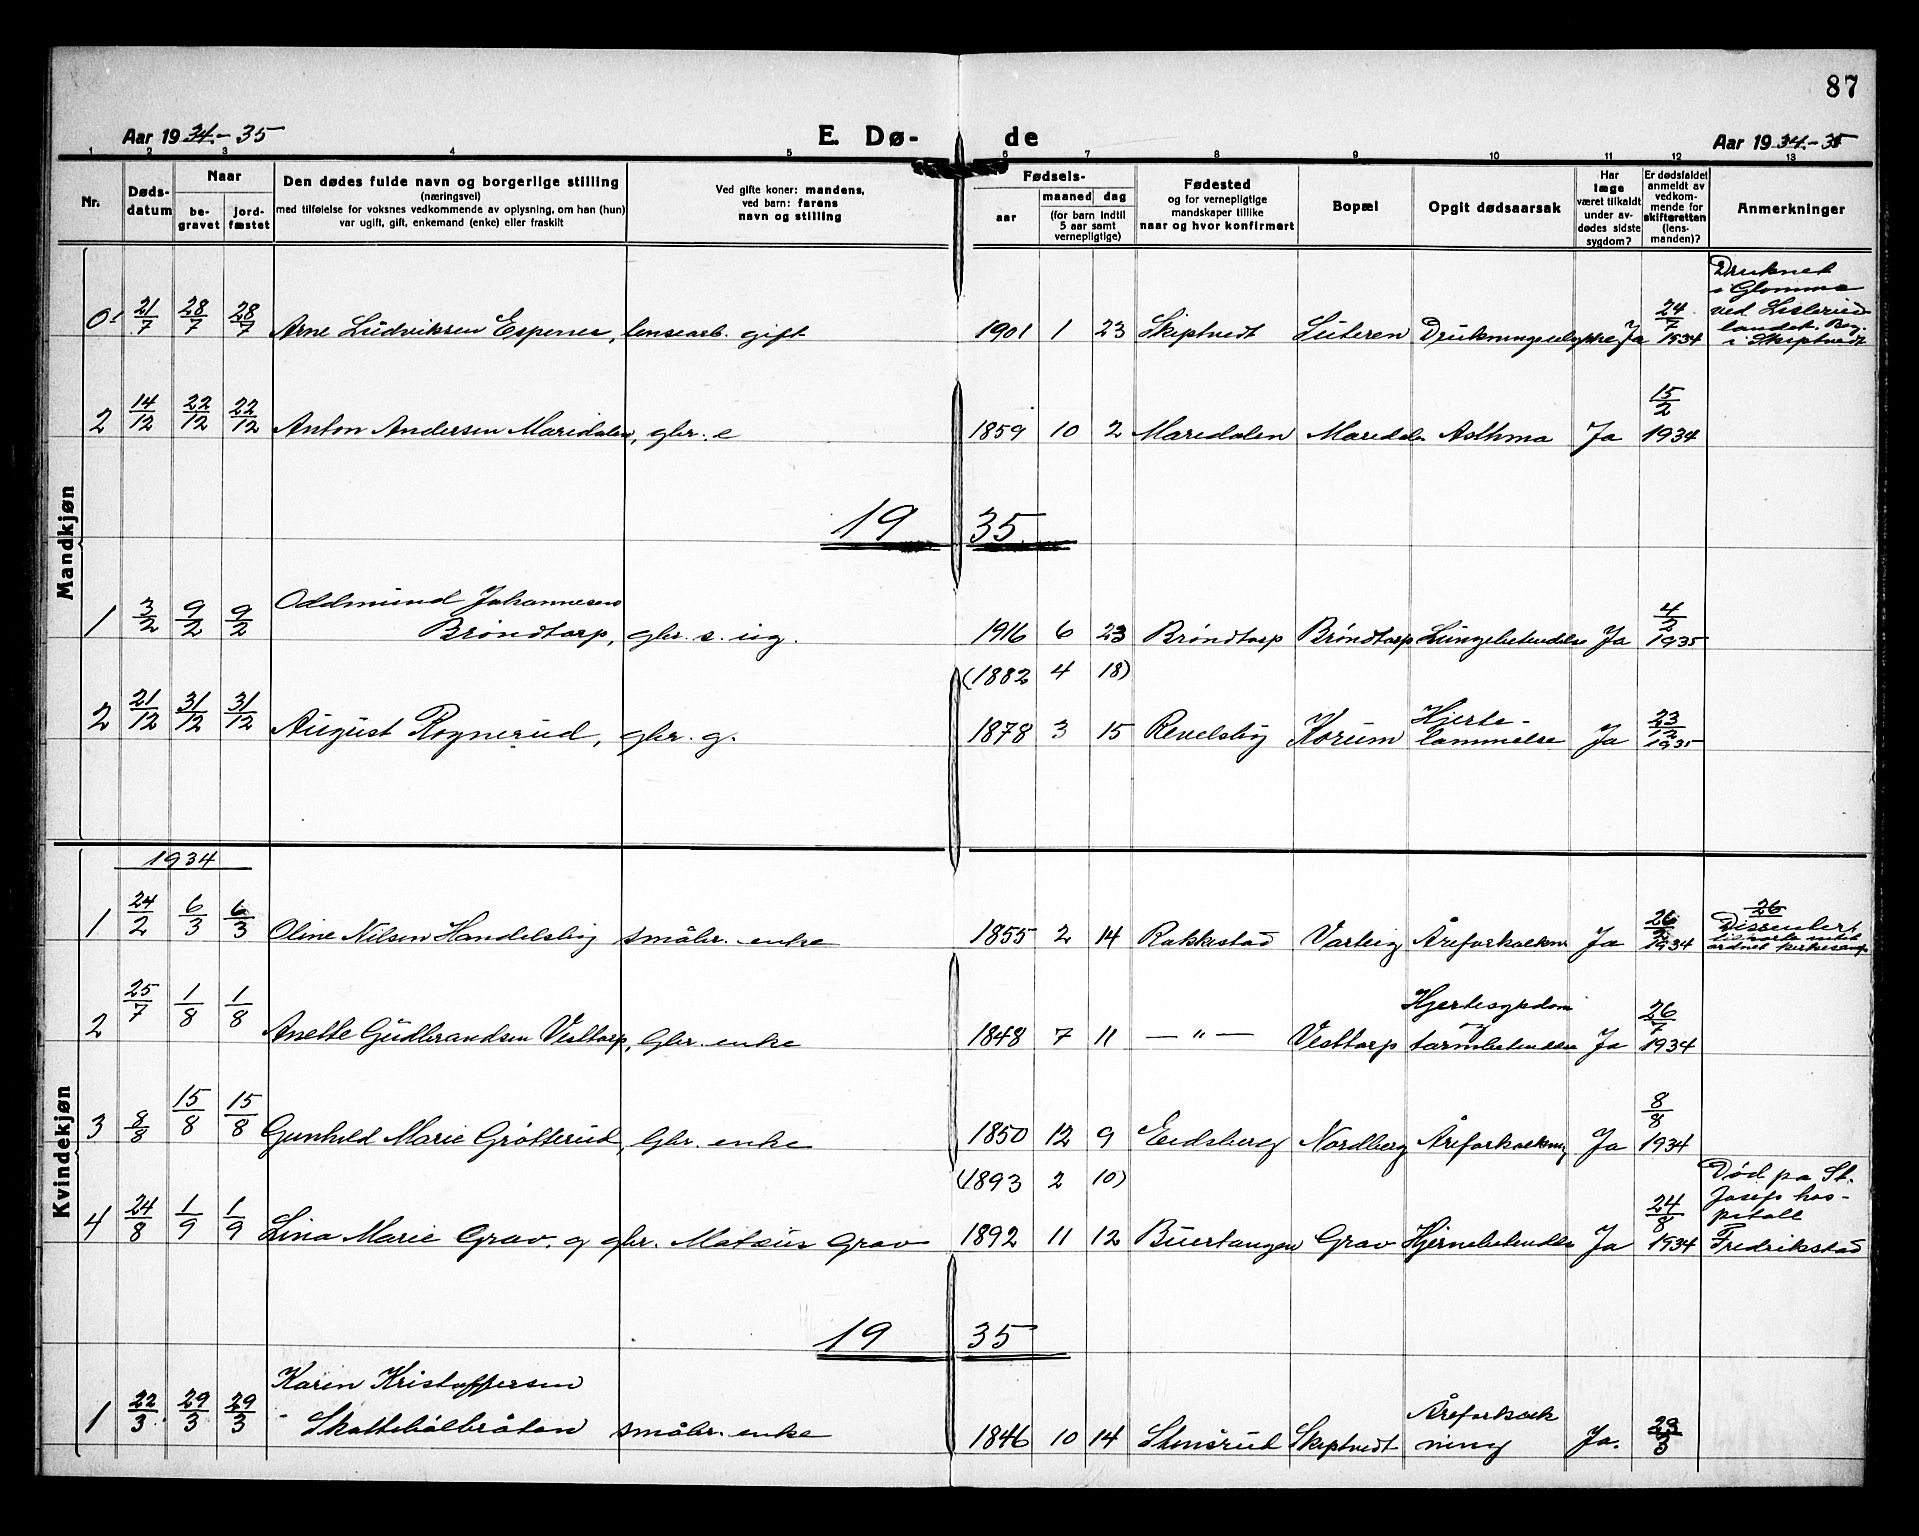 87
Aar 1934-35 E. Dø- de Aar 1934-35
1 2 3 4 5 6 7 8 9 10 11 12 13
Nr.
Døds-
datum
Naar
be-
gravet
jord-
fæstet
Den dødes fulde navn og borgerlige stilling
(næringsvei)
med tilføielse for voksnes vedkommende av oplysning, om han (hun)
var ugift, gift, enkemand (enke) eller fraskilt
Ved gifte koner: mandens,
ved barn: farens
navn og stilling
Fødsels-
aar
maaned
dag
(for barn indtil
5 aar samt
vernepligtige)
Fødested
og for vernepligtige
mandskaper tillike
naar og hvor konfirmert
Bopæl
Opgit dødsaarsak
Har
læge
været tilkaldt
under av-
dødes sidste
sygdom?
Er dødsfaldet
anmeldt av
vedkom-
mende for
skifteretten
(lens-
manden)?
Anmerkninger
Mandkjøn
0 21/7 28/7 28/7 Arne Ludviksen Espenes, lensearb. gift 1901 1 23 Skiptvedt Ja 24/7 1934
Druknet
i Glomma
ved
landet. Beg.
i Skiptvedt
2 14/12 22/12 22/12 Anton Andersen Maridalen, gbr. e 1859 10 2 Maredalen Maredalen Asthma Ja 15/2 1934
19 35
Oddmund Johannesen
1 3/2 9/2 9/2 Brøndtorp, gbr. s. ug. 1916 6 23 Brøndtorp Brøndtorp Lungebetendelse Ja 4/2 1935
(1882 4 18)
2 21/12 31/12 31/12 August Rognerud, gbr. g. 1878 3 15 Revelsby Korum Hjerte-
lammelse Ja 23/12 1935
Kvindekjøn
1934
1 24/2 6/3 6/3 Oline Nilsen Handelsby småbr. enke 1855 2 14 Rakkestad Varteig Åreforkalkn Ja 26/2 1934
26
Dissenter,
2 25/7 1/8 1/8 Anette Gudbrandsen Vesttorp, Gbr. enke 1848 7 11 — " — Vesttorp Hjertesygdom
og
tarmbetendelse Ja 26/7 1934
3 8/8 15/8 15/8 Gunhild Marie Grøtterud, Gbr. enke 1850 12 9 Eidsberg Nordberg Åreforkalkning Ja 8/8 1934
(1893 2 10)
4 24/8 1/9 1/9 Lina Marie Grav. g gbr. Matæus Grav 1892 11 12 Buertangen Grav Hjernebetendelse Ja 24/8 1934
Død på St.
Josefs hos-
pitall
Fredrikstad
19 35
Karin Kristoffersen
1 22/3 29/3 29/3 Skottebølbråten småbr. enke 1846 10 14 Stensrud Skiptvedt Åreforkalk
ning Ja.